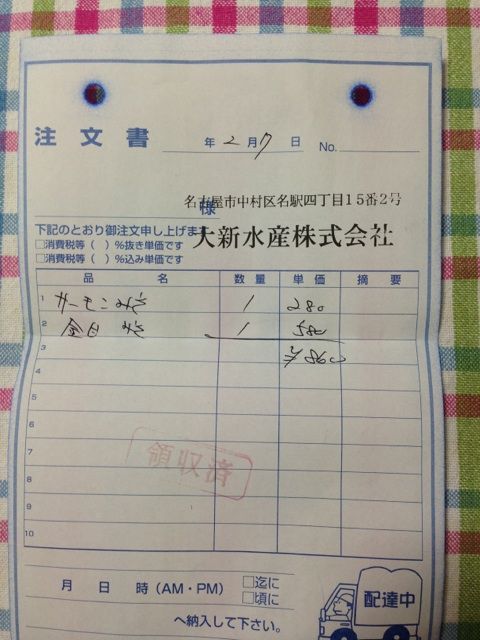 注文書 年 2月 7日 No.
名古屋市中村区名駅四丁目15番2号
様
下記のとおり御注文申し上げます
大新水産株式会社
□消費税等( )%抜き単価です
□消費税等( )%込み単価です
品 名 数量 単価 摘要
1 サーモン 1 280
2 金目 1 580
3 ¥860
4
5
6
7 領収済
8
9
10
月 日 時(AM・PM) □迄に
□頃に
配達中
へ納入して下さい。